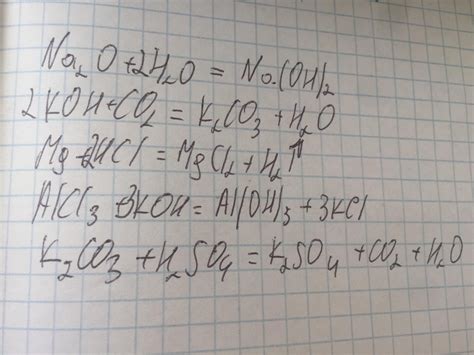 Na₂O + 2H₂O = Na(OH)₂
2KOH + CO₂ = K₂CO₃ + H₂O
Mg + 2HCl = MgCl₂ + H₂↑
AlCl₃ + 3KOH = Al(OH)₃ + 3KCl
K₂CO₃ + H₂SO₄ = K₂SO₄ + CO₂ + H₂O